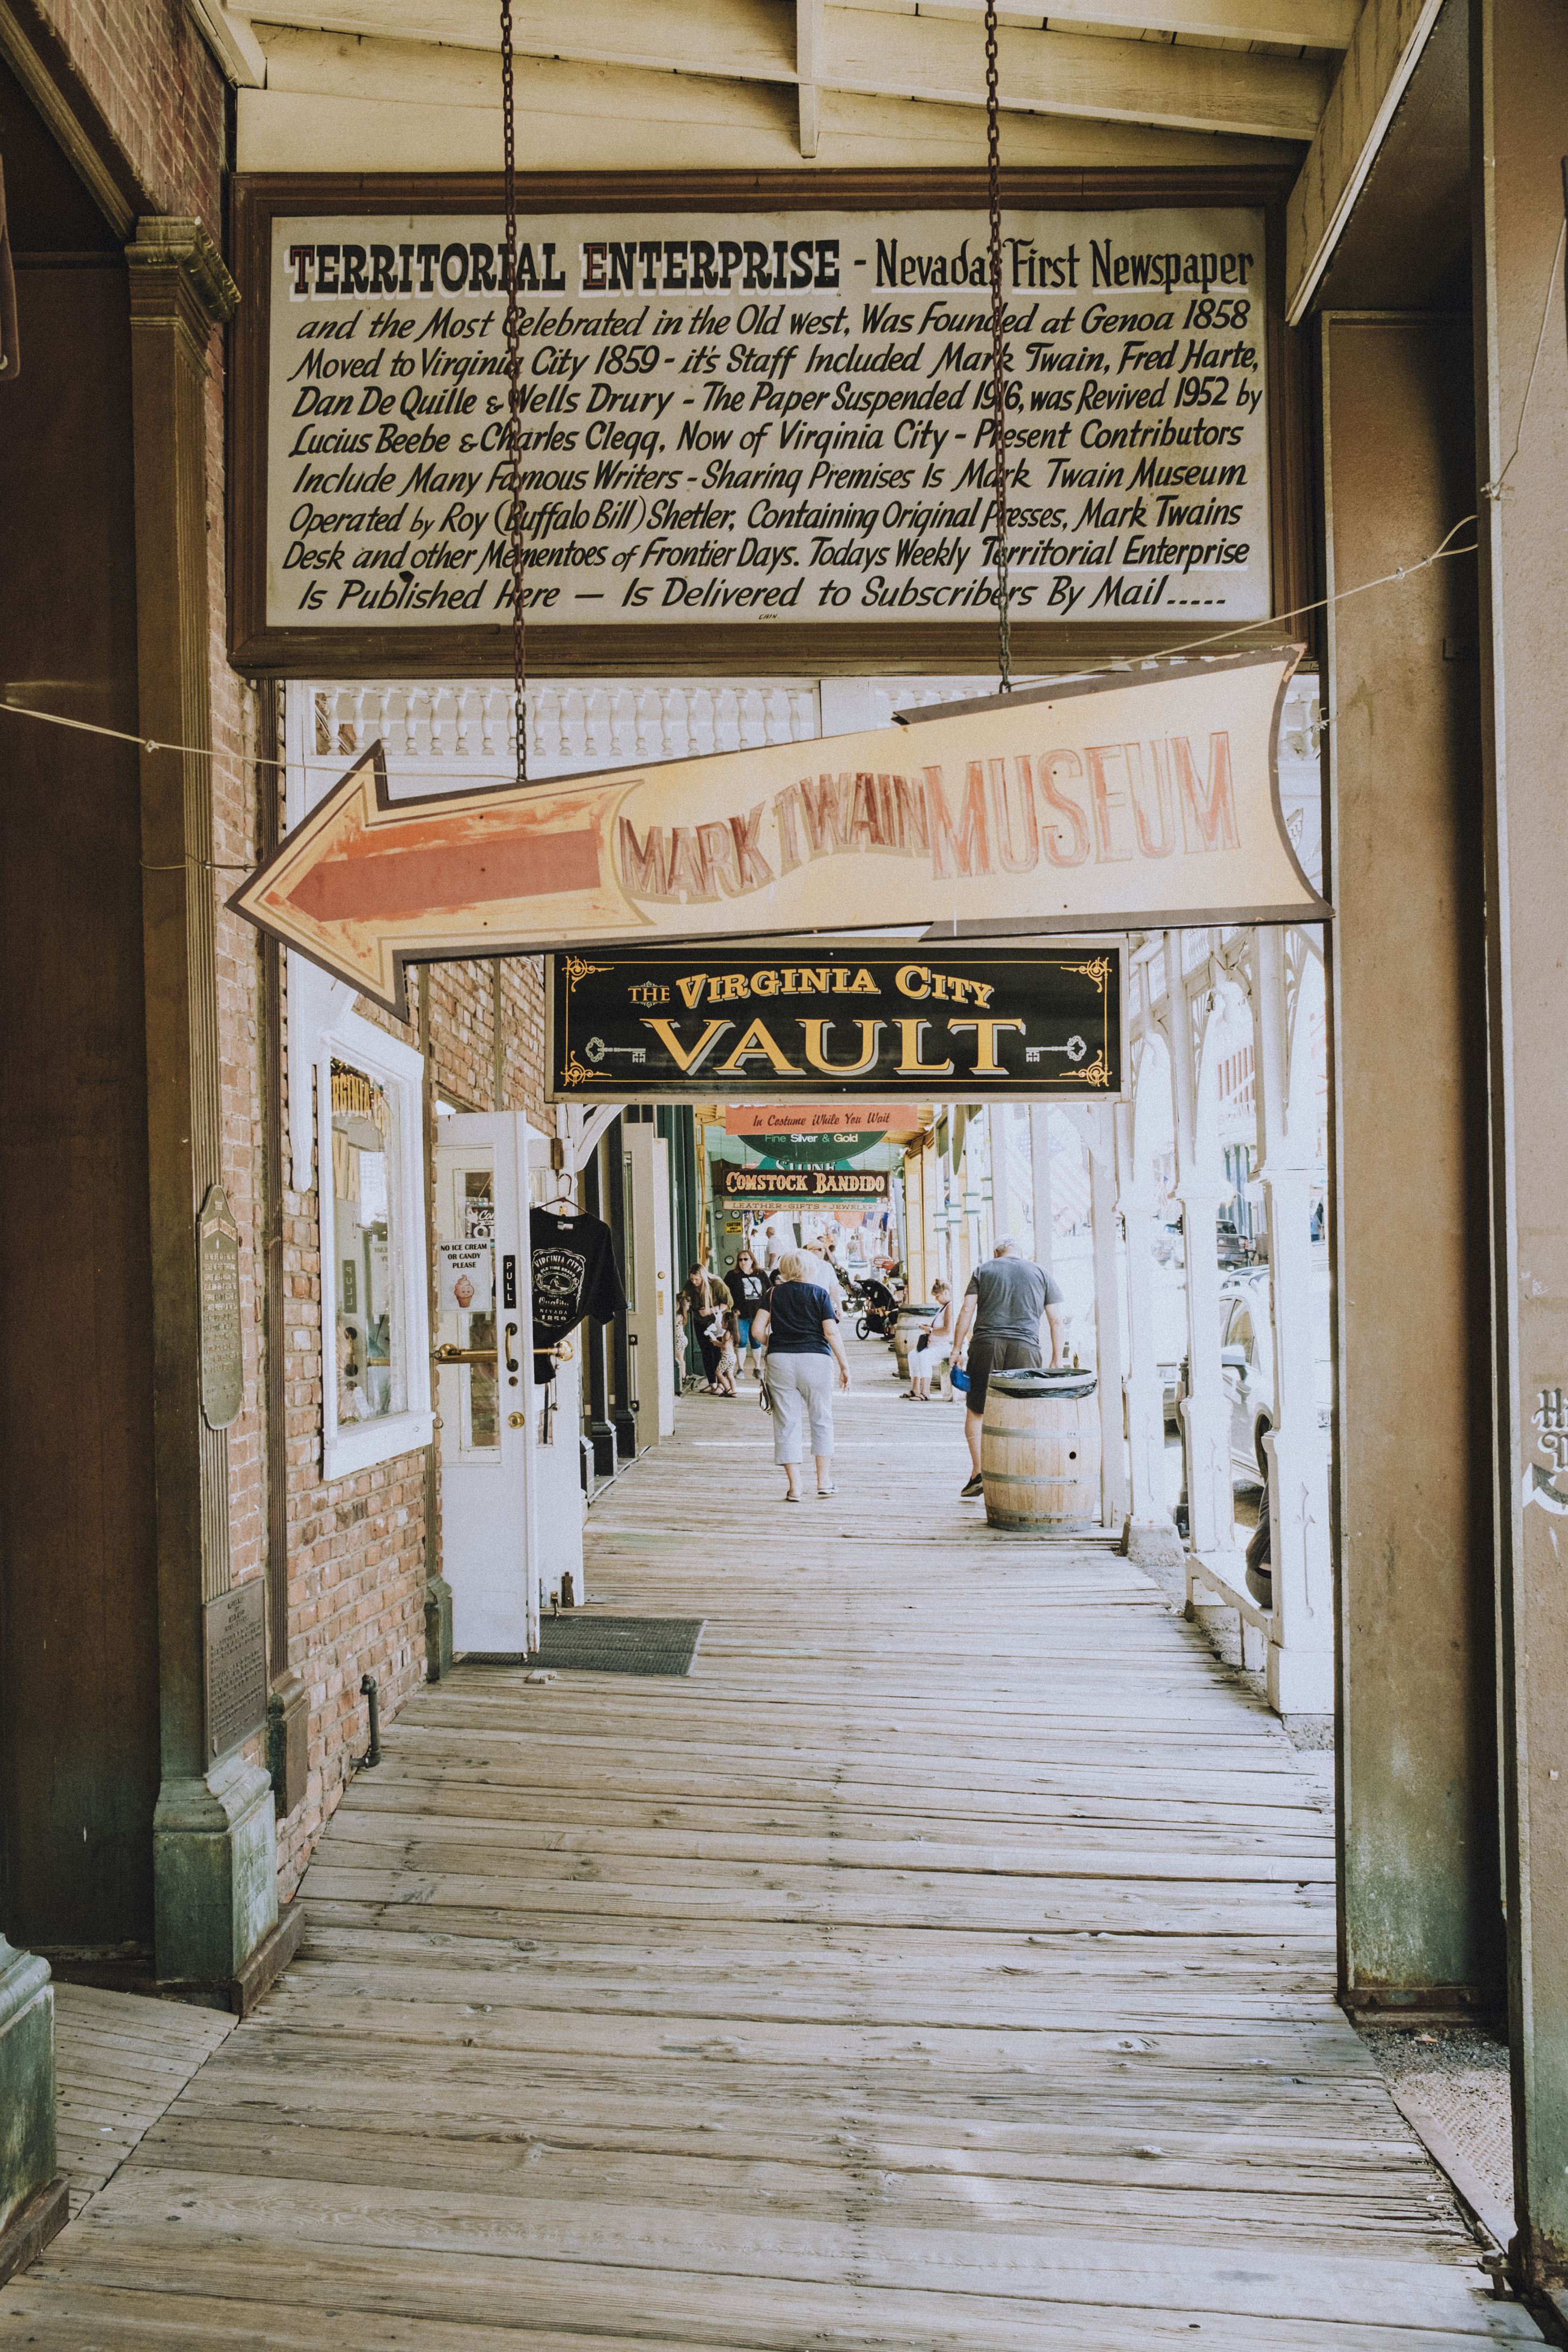 TERRITORIAL ENTERPRISE - Nevada's First Newspaper
and the Most Celebrated in the Old west, Was Founded at Genoa 1858
Moved to Virginia City 1859 - it's Staff Included Mark Twain, Fred Harte,
Dan De Quille & Wells Drury - The Paper Suspended 1916, was Revived 1952 by
Lucius Beebe & Charles Clegg, Now of Virginia City - Present Contributors
Include Many Famous Writers - Sharing Premises Is Mark Twain Museum
Operated by Roy (Buffalo Bill) Shetler, Containing Original Presses, Mark Twains
Desk and other Mementoes of Frontier Days. Todays Weekly Territorial Enterprise
Is Published Here — Is Delivered to Subscribers By Mail.....
MARK TWAIN MUSEUM
THE VIRGINIA CITY
VAULT
In Costume While You Wait
Fine Silver & Gold
COMSTOCK BANDIDO
LEATHER-GIFTS-JEWELERY
NO ICE CREAM
OR CANDY
PLEASE
PULL
PULL
VIRGINIA CITY
Quality
NEVADA
1859